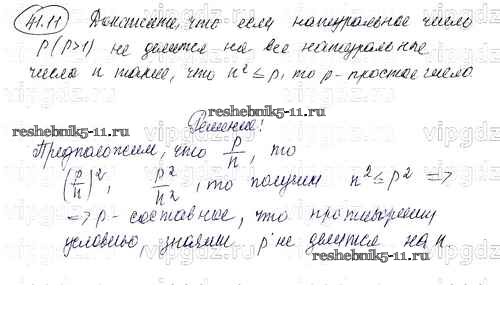 41.11 Докажите, что если натуральное число
p (p>1) не делится на все натуральные
числа n такие, что n² ≤ p, то p - простое число.
reshebnik5-11.ru
Решение!
reshebnik5-11.ru
Предположим, что p/n, то
(p/n)², p²/n², то получим n² ≤ p² =>
=> p - составные, что противоречит
условью, значит p не делится на n.
reshebnik5-11.ru